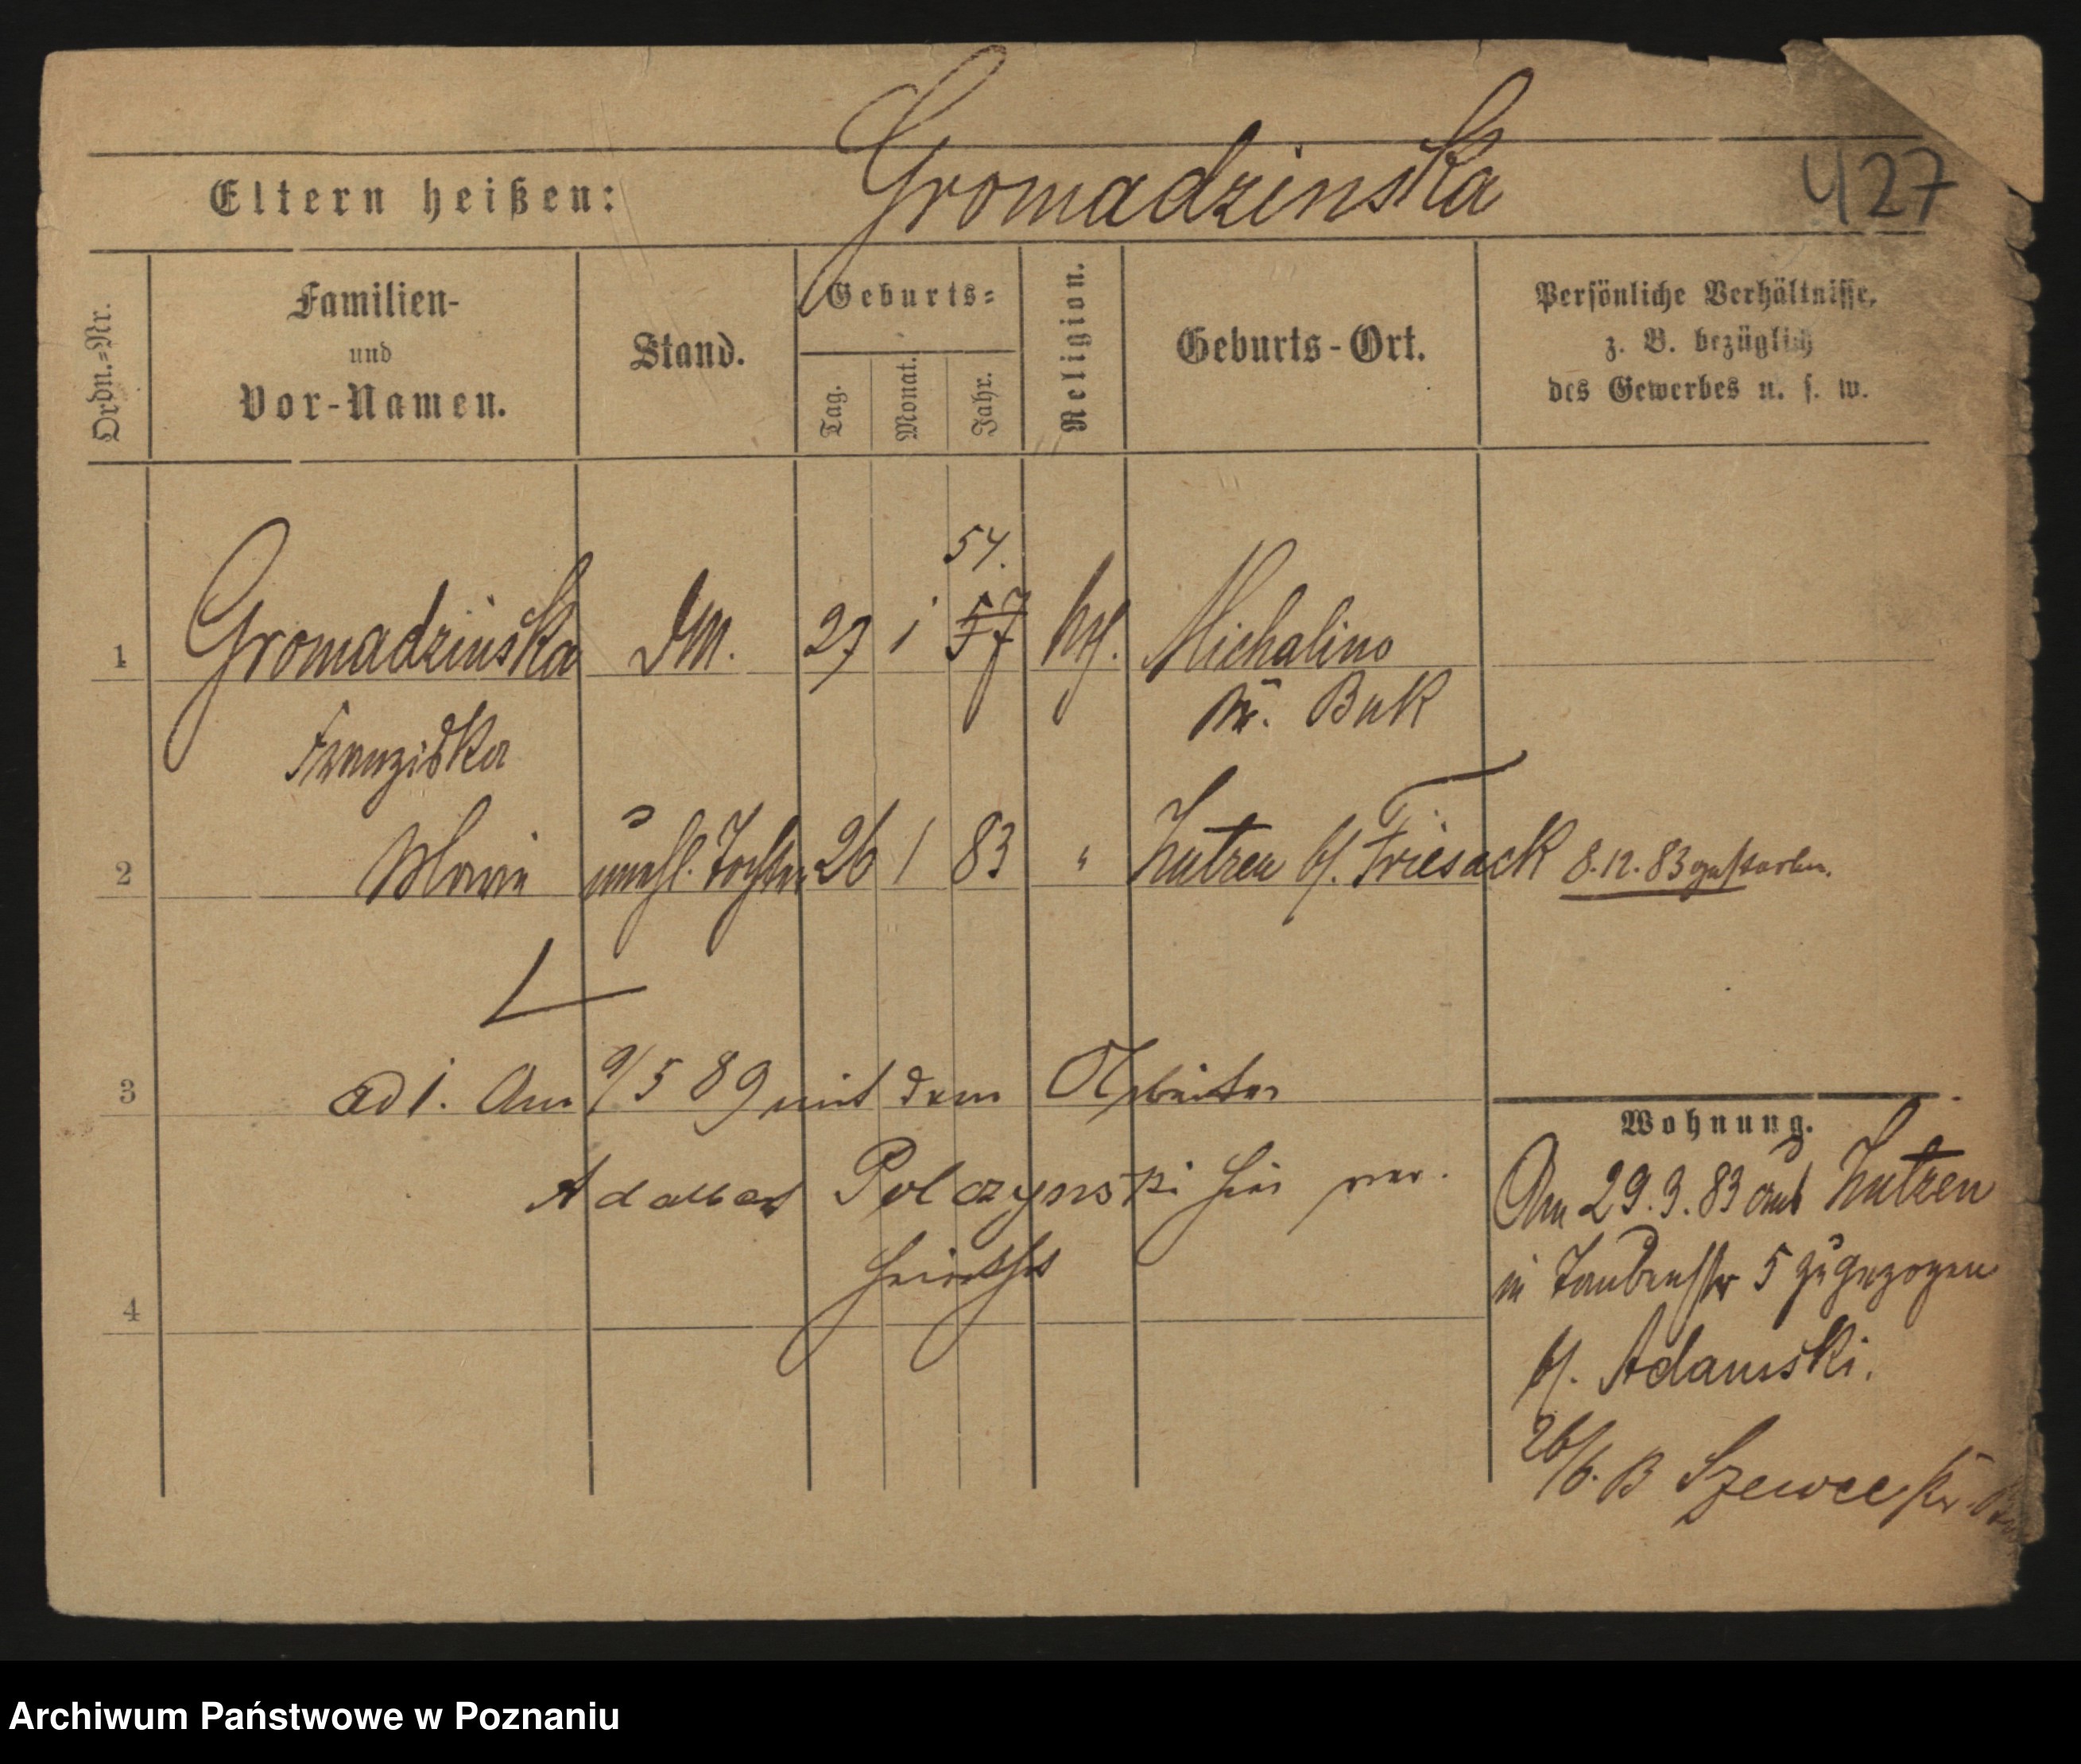 Gromadzinska
427
Eltern heißen:
Ordn.=Nr.
Familien-
und
Vor-Namen.
Stand.
Geburts=
Tag.
Monat.
Jahr.
Religion.
Geburts-Ort.
Persönliche Verhältnisse,
z. B. bezüglich
des Gewerbes u. s. w.
54.
1 Gromadzinska DM. 27 1 57 kth. Michalino
Kr. Buk
Franziska
2 Marie unehl. Tochter 26 1 83 " Lutzen b/. Friesack 8.12.83 gestorben.
3 ad 1. Am 9/5 89 mit dem Arbeiter
Adalbert Polczynski hier ver.
heirathet
4
Wohnung.
Am 29.3.83 aus Lutzen
in Taubenstr 5 zugezogen
b/. Adamski.
26/6. B Szewce Kr.
Archiwum Państwowe w Poznaniu